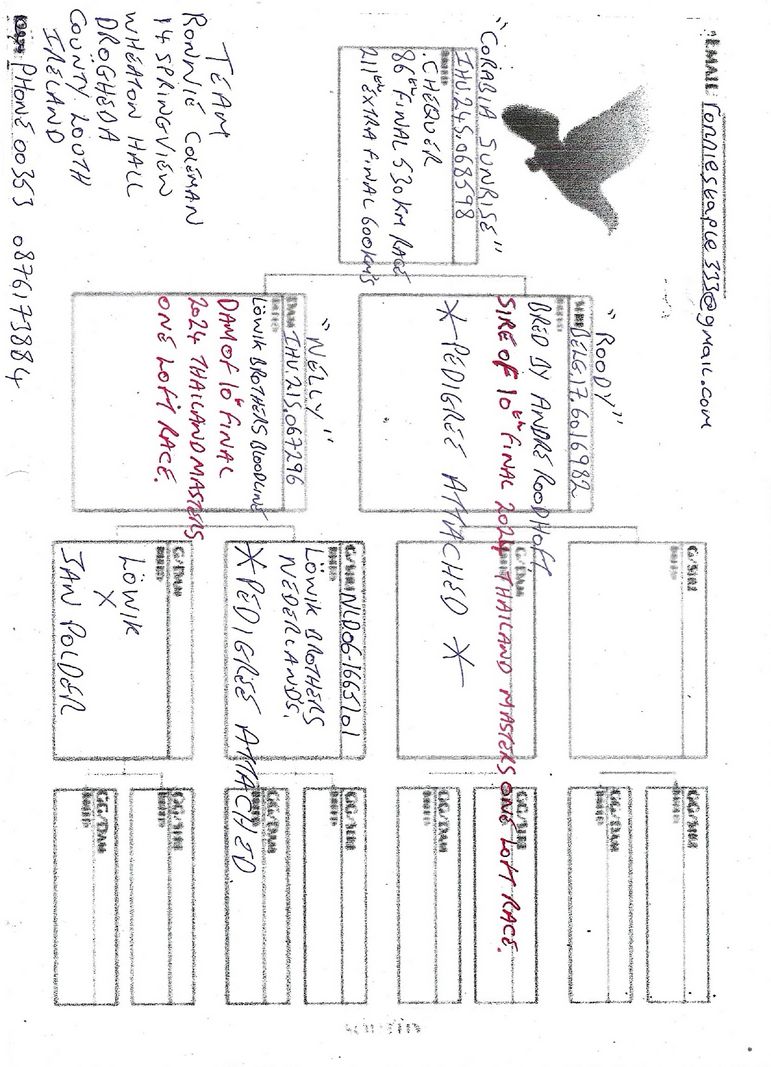 EMAIL: ronniestaple333@gmail.com
"CORABIA SUNRISE"
IHU.24S.068598
CHEQUER
86th FINAL 530KM RACE
211th EXTRA FINAL 600KM'S
TEAM
RONNIE COLEMAN
14 SPRINGVIEW
WHEATON HALL
DROGHEDA
COUNTY LOUTH
IRELAND
PHONE 00353 0876173884
"ROODY"
SIRE BELG.17.6016982
BRED BY ANDRE ROODHOFT
SIRE OF 10th FINAL 2024 THAILAND MASTERS ONE LOFT RACE.
* PEDIGREE ATTACHED *
"NELLY"
DAM IHU.21S.067296
LÖWIK BROTHERS BLOODLINE
DAM OF 10th FINAL
2024 THAILAND MASTERS
ONE LOFT RACE.
G/SIRE
G/DAM
G/SIRE NLD06-1665101
LÖWIK BROTHERS
NEDERLANDS.
* PEDIGREE ATTACHED.
G/DAM
LÖWIK
X
JAN POLDER
GG/SIRE
GG/DAM
GG/SIRE
GG/DAM
GG/SIRE
GG/DAM
GG/SIRE
GG/DAM